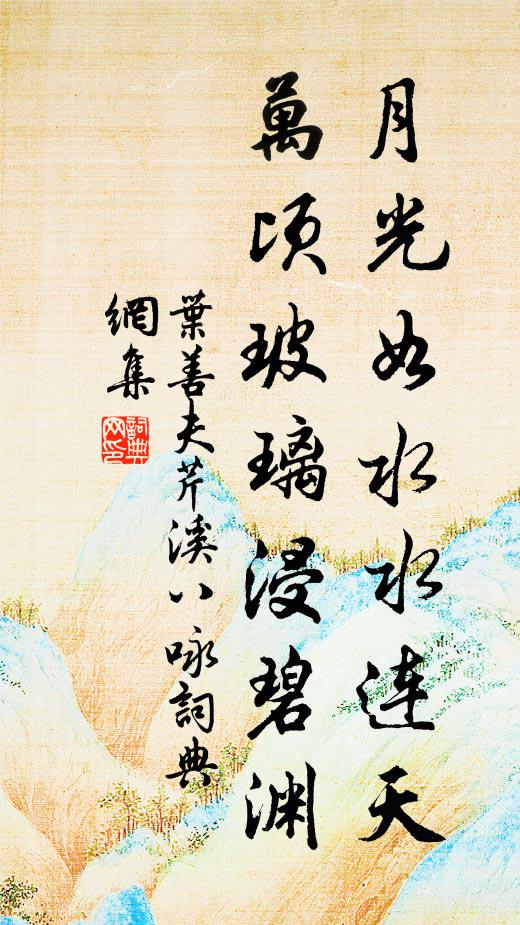 月光如水水连天
萬顷玻璃浸碧渊
葉善夫芹溪八咏詞典
網集
詞典
网印